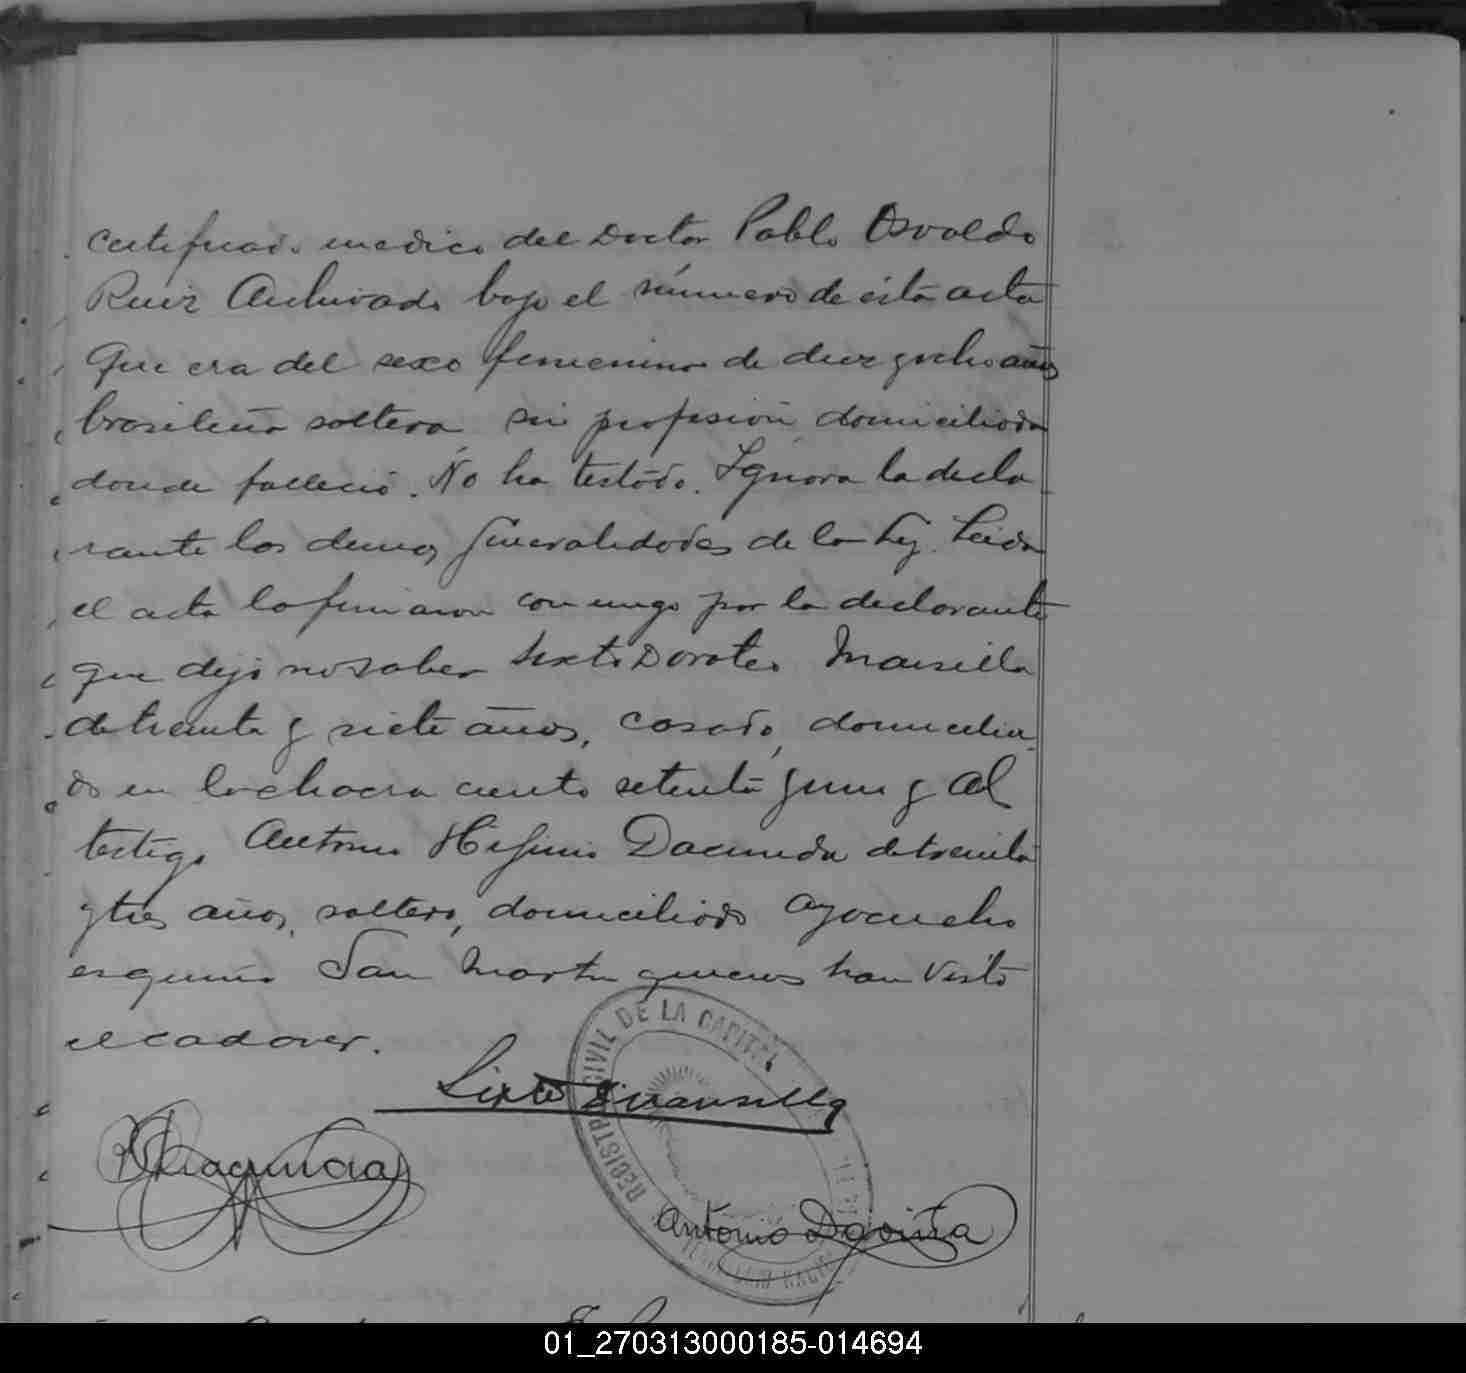 certificado medico del Doctor Pablo Osvaldo
Ruiz Archivado bajo el número de ésta acta
Que era del sexo femenino de diez y ocho años
brasileña soltera sin profesión domiciliada
donde falleció. No ha testado. Ignora la decla
rante las demas generalidades de la Ley. Leida
el acta la firmaron conmigo por la declarante
que dijo no saber Sixto Doroteo Mansilla
de treinta y siete años, casado, domicilia
do en la chacra ciento setenta y uno y el
testigo Antonio Higinio Dacunda de treinta
y tres años, soltero, domiciliado Ayacucho
esquina San Martin quienes han visto
el cadaver.
Sixto D Mansilla
Antonio
REGISTRO CIVIL DE LA CAPITAL
01_270313000185-014694